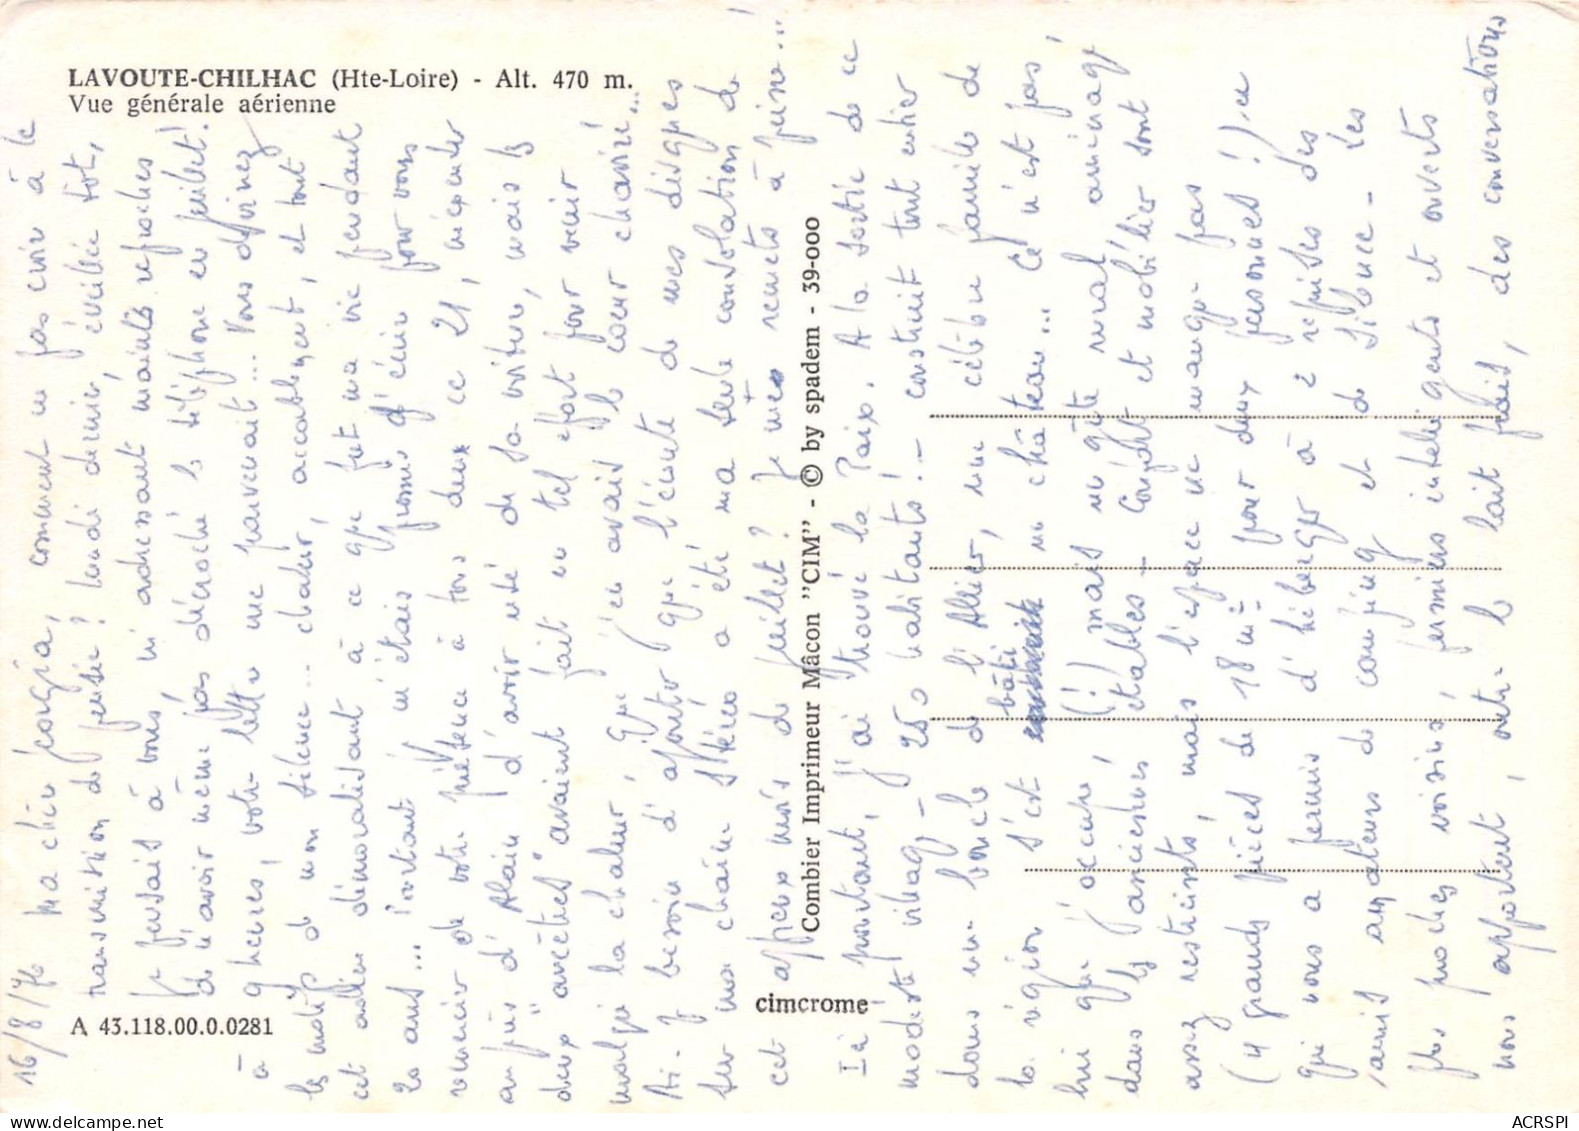 LAVOUTE-CHILHAC (Hte-Loire) - Alt. 470 m.
Vue générale aérienne
A 43.118.00.0.0281
cimcrome
Combier Imprimeur Mâcon "CIM" - © by spadem - 39-000
16/8/76 Ma chère Georgia, comment ne pas croire à la
transmission de pensée ? lundi dernier, éveillée tôt,
je pensais à vous, m'adressant maints reproches
de n'avoir même pas décroché le téléphone en juillet!
à 9 heures, votre lettre me parvenait... Vous devinez
les motifs de mon silence... chaleur, accablement, et tout
cet atelier démoralisant à ce que fut ma vie pendant
20 ans... Pourtant m'étais promis d'écrire pour vous
remercier de votre présence à tous deux ce 21, m'excuser
auprès d'Alain d'avoir usé de sa voiture, mais les
deux "arêtes" avaient fait un tel effort pour venir
malgré la chaleur, que j'en avais le cœur chaviré...
Ai-je besoin d'ajouter que l'écoute de mes disques
sur ma chaîne stéréo a été ma seule consolation de
cet affreux mois de juillet ? Je m'en remets à peine...
Ici pourtant, j'ai trouvé la Paix. A la sortie de ce
modeste village - 250 habitants! - construit tout entier
dans une boucle de l'Allier, une célèbre famille de
la région s'est bâti un château... Ce n'est pas
lui que j'occupe, (!) mais un gîte rural aménagé
dans les anciennes étables - Confort et mobilier sont
assez restreints, mais l'espace ne manque pas
(4 grands pièces de 18 m² pour deux personnes!) ce
qui nous a permis d'héberger à 2 reprises des
amis amateurs de camping et de silence - Les
plus proches voisins, fermiers intelligents et ouverts
nous apportent, outre le lait frais, des conversations
ACRSPI